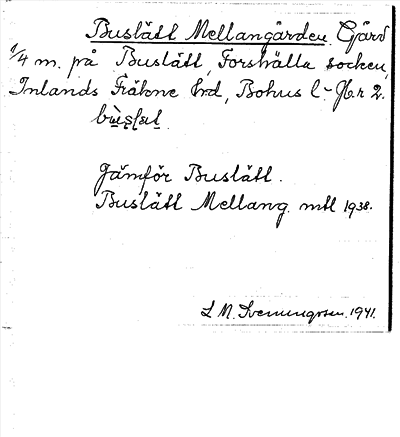 Buslätt Mellangården. Gård
1/4 m. på Buslätt, Forshälla socken,
Inlands Fräkne h:d, Bohus l. Jb. n 2.
Jämför Buslätt.
Buslätt Mellang. mtl 1938.
L. M. Svenungsson. 1941.